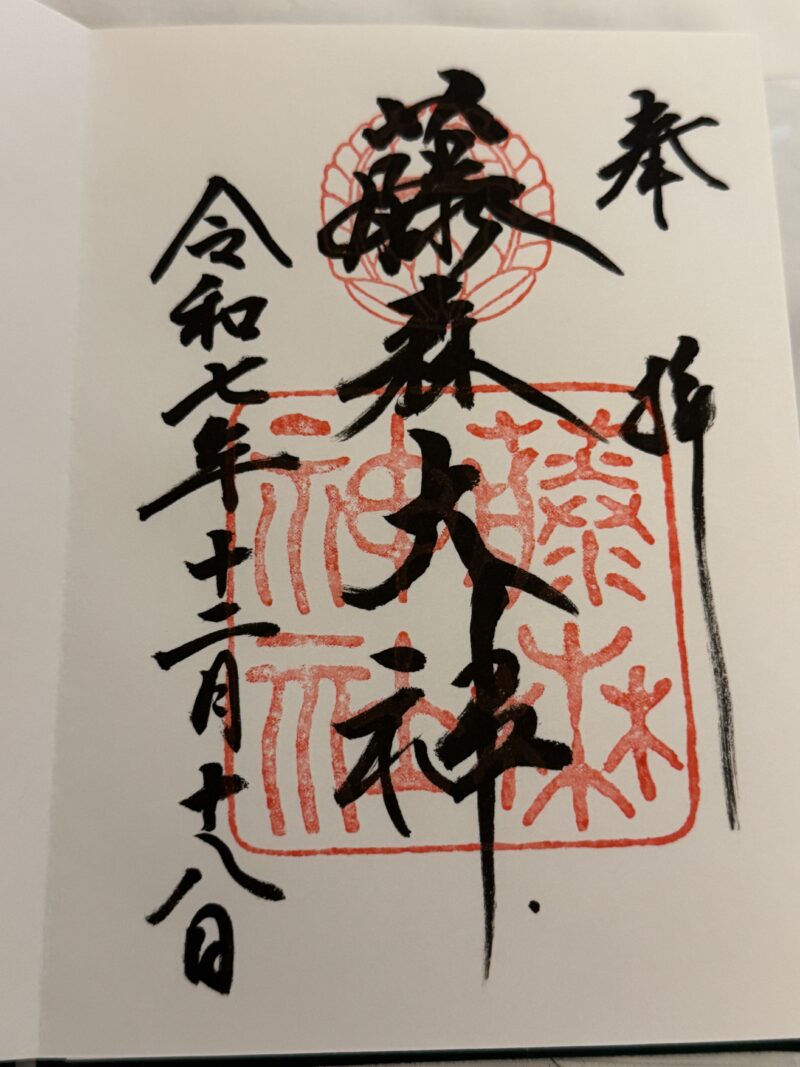 奉拝
藤森大神
藤森神社
令和七年十二月十八日